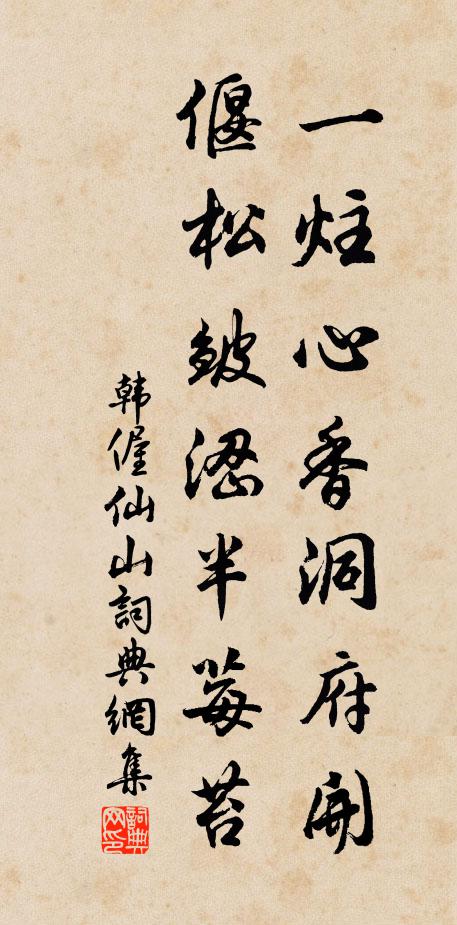 一炷心香洞府開
偃松皴澀半莓苔
韩偓仙山詞典網集
詞典网印